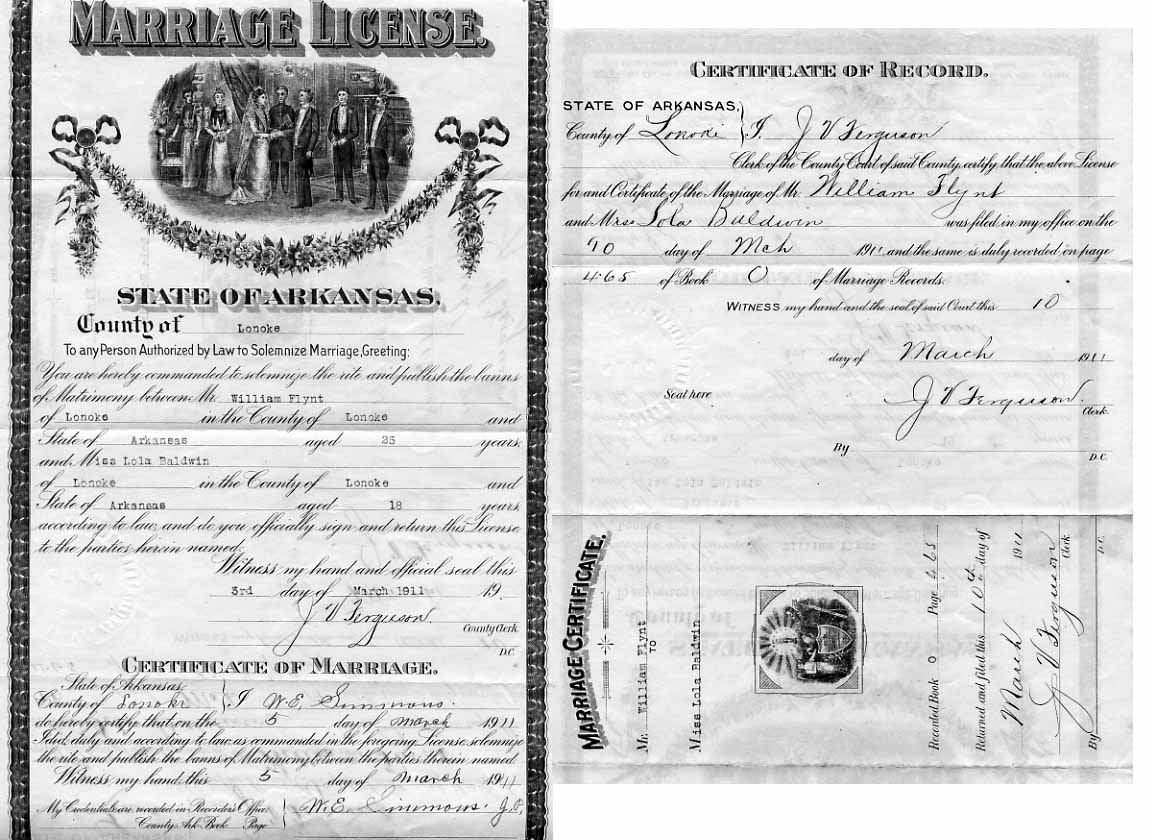 MARRIAGE LICENSE.
STATE OF ARKANSAS.
County of Lonoke
To any Person Authorized by Law to Solemnize Marriage, Greeting:
You are hereby commanded to solemnize the rite and publish the banns
of Matrimony between Mr. William Flynt
of Lonoke in the County of Lonoke and
State of Arkansas aged 25 years,
and Miss Lola Baldwin
of Lonoke in the County of Lonoke and
State of Arkansas aged 18 years,
according to law, and do you officially sign and return this License
to the parties herein named.
Witness my hand and official seal this
3rd day of March 1911 19
J V Ferguson.
County Clerk
D.C.
CERTIFICATE OF MARRIAGE.
State of Arkansas,
County of Lonoke } I W.E. Simmons.
do hereby certify that on the 5 day of March 1911
I did, duly and according to law, as commanded in the foregoing License, solemnize
the rite and publish the banns of Matrimony between the parties therein named.
Witness my hand this 5 day of March 1911
My Credentials are recorded in Recorder's Office { W.E. Simmons. J.P.
County Ark Book Page
CERTIFICATE OF RECORD.
STATE OF ARKANSAS,
County of Lonoke } I, J V Ferguson
Clerk of the County Court of said County, certify, that the above License
for and Certificate of the Marriage of Mr. William Flynt
and Miss Lola Baldwin was filed in my office on the
10 day of Mch 1911 and the same is duly recorded on page
465 of Book O of Marriage Records.
WITNESS my hand and the seal of said Court this 10
day of March 1911
Seal here J V Ferguson.
Clerk.
By
D.C.
MARRIAGE CERTIFICATE.
Mr. William Flynt
TO
Miss Lola Baldwin
Recorded Book O Page 465
Returned and filed this 10th day of
March 1911
J V Ferguson
Clerk
By D.C.